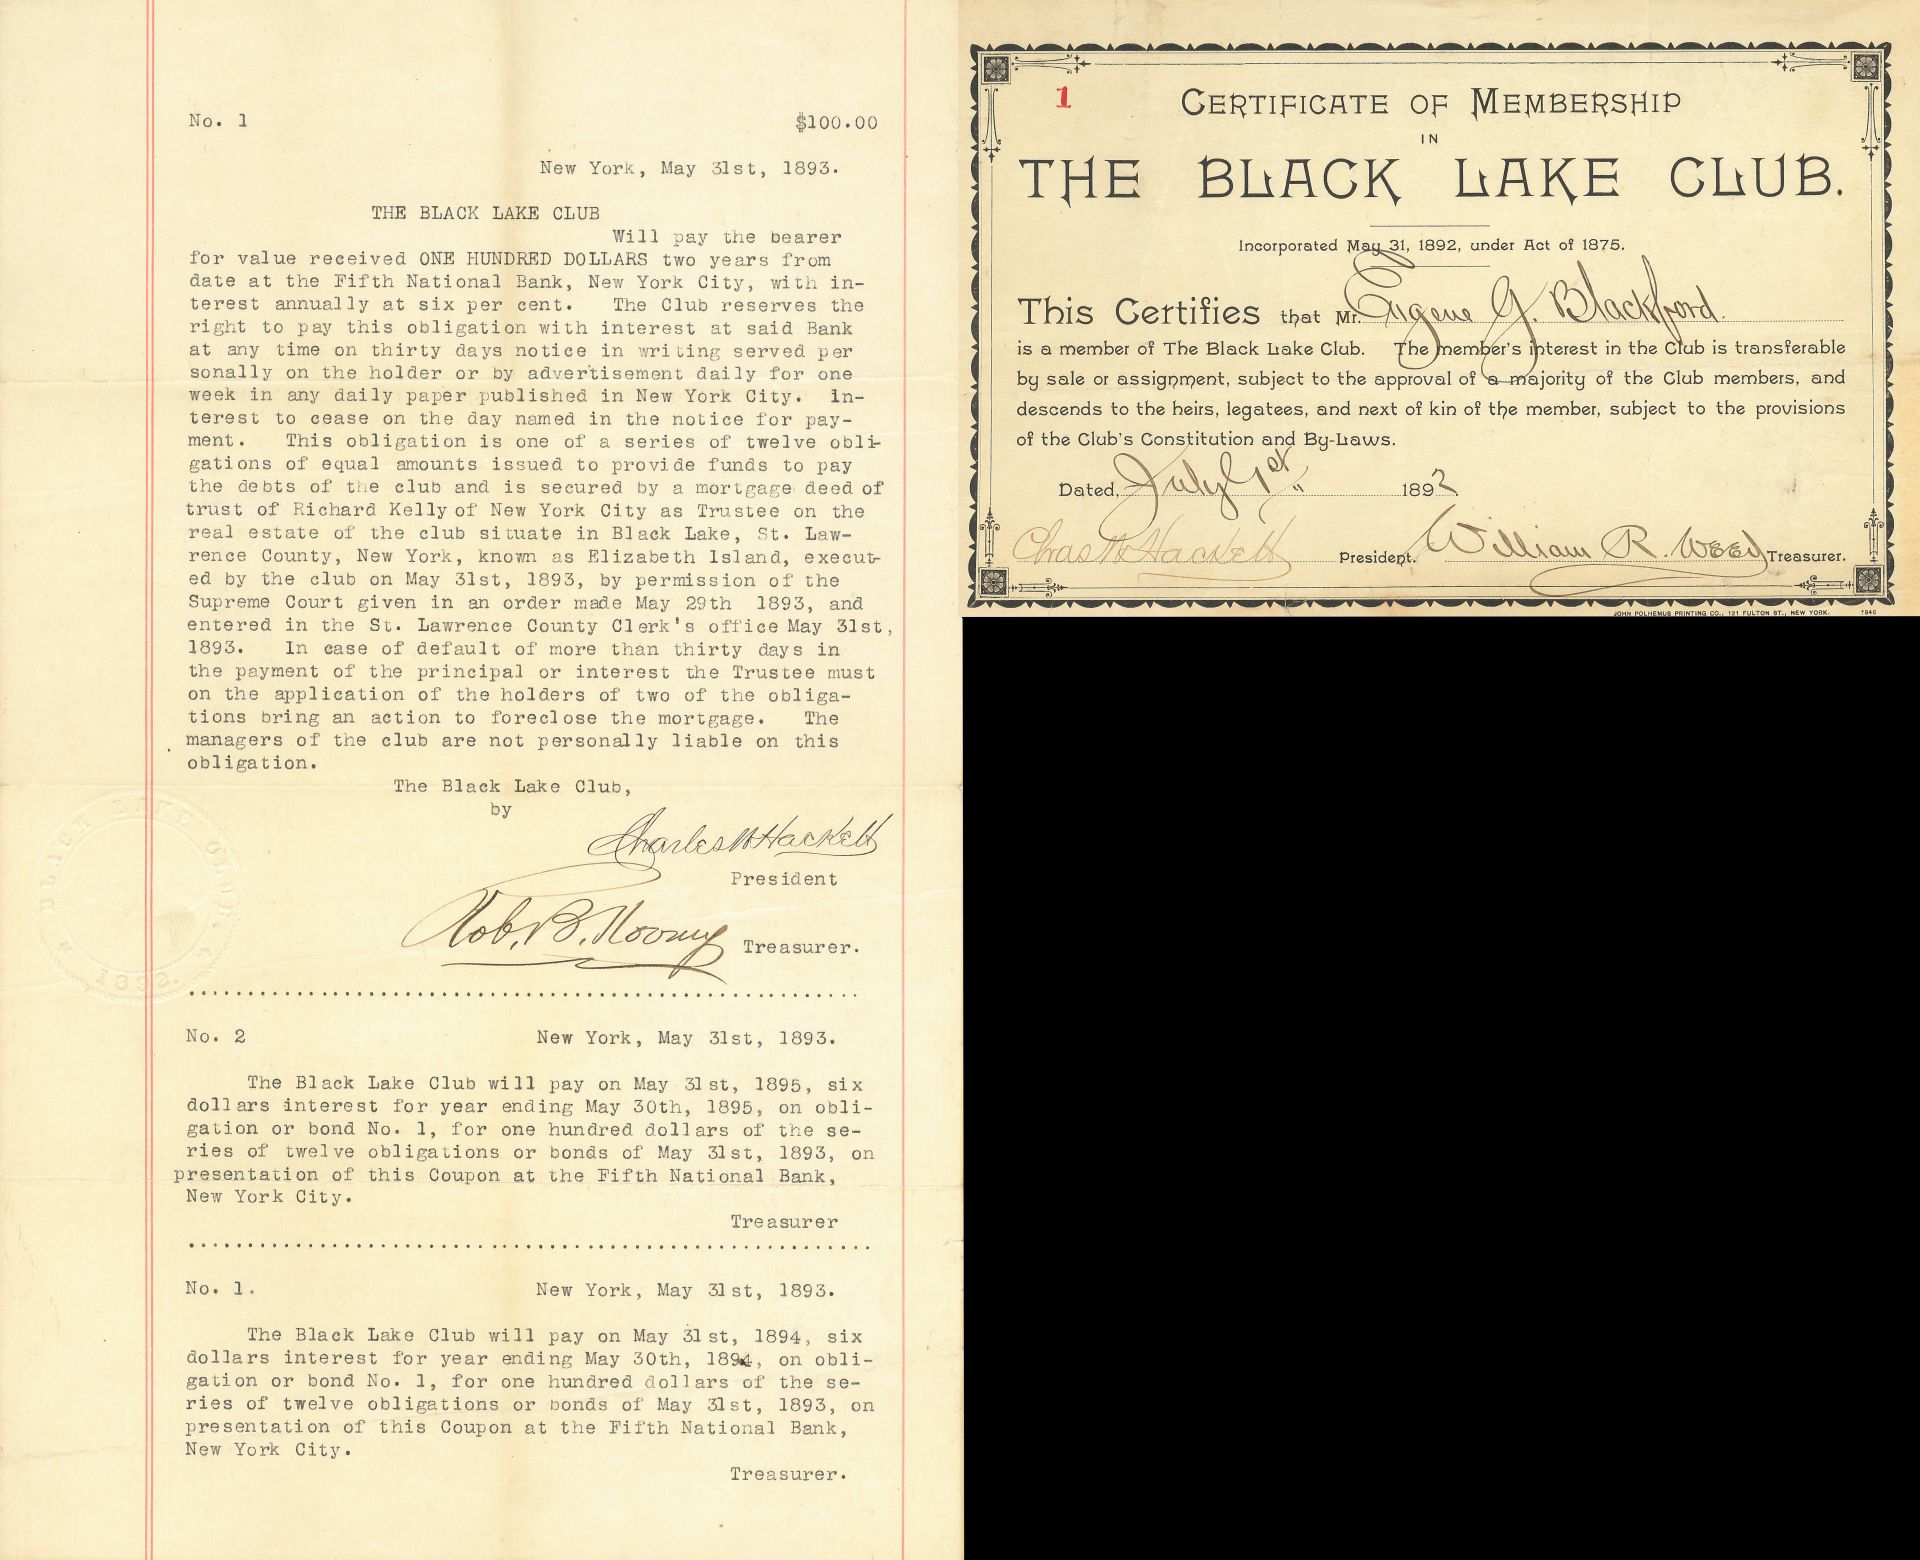 No. 1 $100.00
New York, May 31st, 1893.
THE BLACK LAKE CLUB
Will pay the bearer
for value received ONE HUNDRED DOLLARS two years from
date at the Fifth National Bank, New York City, with in-
terest annually at six per cent. The Club reserves the
right to pay this obligation with interest at said Bank
at any time on thirty days notice in writing served per
sonally on the holder or by advertisement daily for one
week in any daily paper published in New York City. In-
terest to cease on the day named in the notice for pay-
ment. This obligation is one of a series of twelve obli-
gations of equal amounts issued to provide funds to pay
the debts of the club and is secured by a mortgage deed of
trust of Richard Kelly of New York City as Trustee on the
real estate of the club situate in Black Lake, St. Law-
rence County, New York, known as Elizabeth Island, execut-
ed by the club on May 31st, 1893, by permission of the
Supreme Court given in an order made May 29th 1893, and
entered in the St. Lawrence County Clerk's office May 31st,
1893. In case of default of more than thirty days in
the payment of the principal or interest the Trustee must
on the application of the holders of two of the obliga-
tions bring an action to foreclose the mortgage. The
managers of the club are not personally liable on this
obligation.
The Black Lake Club,
by
Charles W Hackett
President
Rob. B. Treasurer.
BLACK LAKE CLUB
1892
No. 2 New York, May 31st, 1893.
The Black Lake Club will pay on May 31st, 1895, six
dollars interest for year ending May 30th, 1895, on obli-
gation or bond No. 1, for one hundred dollars of the se-
ries of twelve obligations or bonds of May 31st, 1893, on
presentation of this Coupon at the Fifth National Bank,
New York City.
Treasurer
No. 1. New York, May 31st, 1893.
The Black Lake Club will pay on May 31st, 1894, six
dollars interest for year ending May 30th, 1894, on obli-
gation or bond No. 1, for one hundred dollars of the se-
ries of twelve obligations or bonds of May 31st, 1893, on
presentation of this Coupon at the Fifth National Bank,
New York City.
Treasurer.
1
CERTIFICATE OF MEMBERSHIP
IN
THE BLACK LAKE CLUB.
Incorporated May 31, 1892, under Act of 1875.
This Certifies that Mr. Eugene G. Blackford
is a member of The Black Lake Club. The member's interest in the Club is transferable
by sale or assignment, subject to the approval of a majority of the Club members, and
descends to the heirs, legatees, and next of kin of the member, subject to the provisions
of the Club's Constitution and By-Laws.
Dated, July 1st 1892.
Chas W Hackett President. William R. Weed Treasurer.
JOHN POLHEMUS PRINTING CO., 121 FULTON ST., NEW YORK. 1946